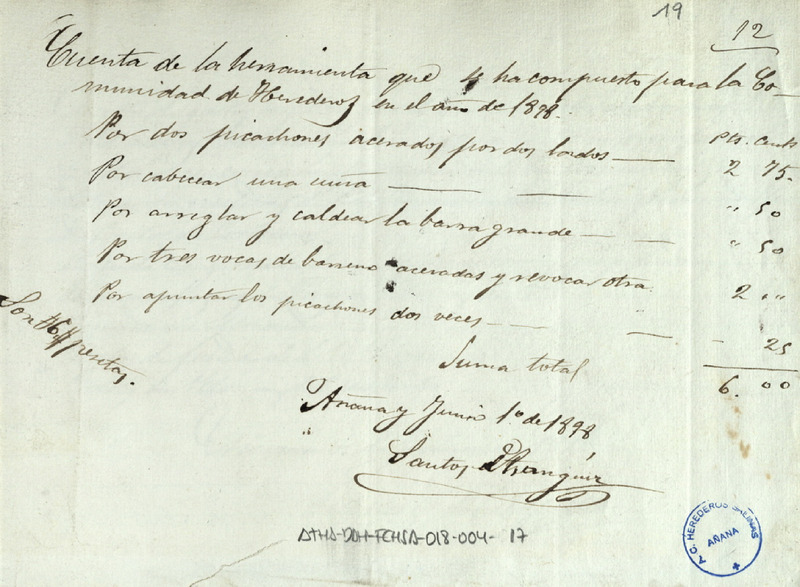 19
12
Cuenta de la herramienta que ha compuesto para la Co-
munidad de Herederos en el año de 1898.
Pts. Cents
Por dos picachones acerados por dos lados — 2 75.
Por cabecear una cuña — — " 50
Por arreglar y caldear la barra grande — — " 50
Por tres vocas de barreno aceradas y revocar otra. 2 ""
Por apuntar los picachones dos veces — — - 25
Son 6 pesetas.
Suma total 6. 00
Añana y Junio 1º de 1898
Santos
ATHS-DDH-FCHSA-018-004- 17
A. C. HEREDEROS SALINAS
AÑANA